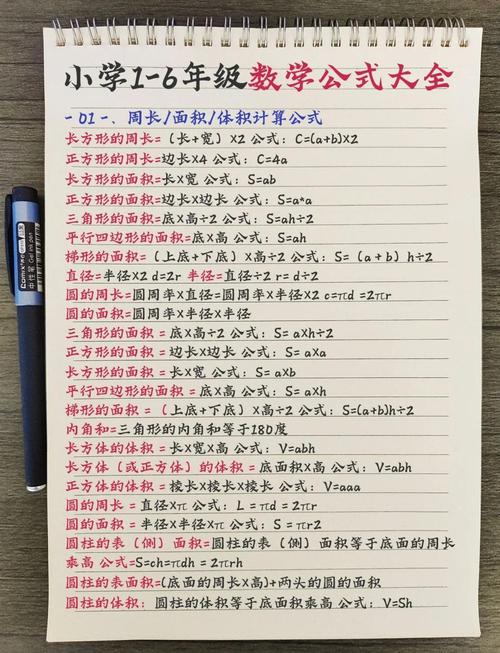 小学1-6年级数学公式大全
-01-、周长/面积/体积计算公式
长方形的周长=（长+宽）X2 公式：C=(a+b)X2
正方形的周长=边长X4 公式：C=4a
长方形的面积=长X宽 公式：S=ab
正方形的面积=边长X边长 公式：S=a*a
三角形的面积=底X高÷2 公式：S=ah÷2
平行四边形的面积=底X高 公式：S=ah
梯形的面积=（上底+下底）X高÷2 公式：S=（a+b）h÷2
直径=半径X2 d=2r 半径=直径÷2 r=d÷2
圆的周长=圆周率X直径=圆周率X半径X2 c=πd =2πr
圆的面积=圆周率X半径X半径
三角形的面积 = 底X高÷2 公式：S= aXh÷2
正方形的面积 = 边长X边长 公式：S= aXa
长方形的面积 = 长X宽 公式：S= aXb
平行四边形的面积 = 底X高 公式：S= aXh
梯形的面积 =（上底+下底）X高÷2 公式：S=(a+b)h÷2
内角和=三角形的内角和等于180度
长方体的体积 = 长X宽X高 公式：V=abh
长方体（或正方体）的体积 = 底面积X高 公式：V=abh
正方体的体积 = 棱长X棱长X棱长 公式：V=aaa
圆的周长 = 直径Xπ 公式：L = πd = 2πr
圆的面积 = 半径X半径Xπ 公式：S = πr2
圆柱的表（侧）面积=圆柱的表（侧）面积等于底面的周长
乘高 公式=S=ch=πdh = 2πrh
圆柱的表面积=(底面的周长X高)+两头的圆的面积
圆柱的体积：圆柱的体积等于底面积乘高 公式：V=Sh
中性笔 Gel ink pen